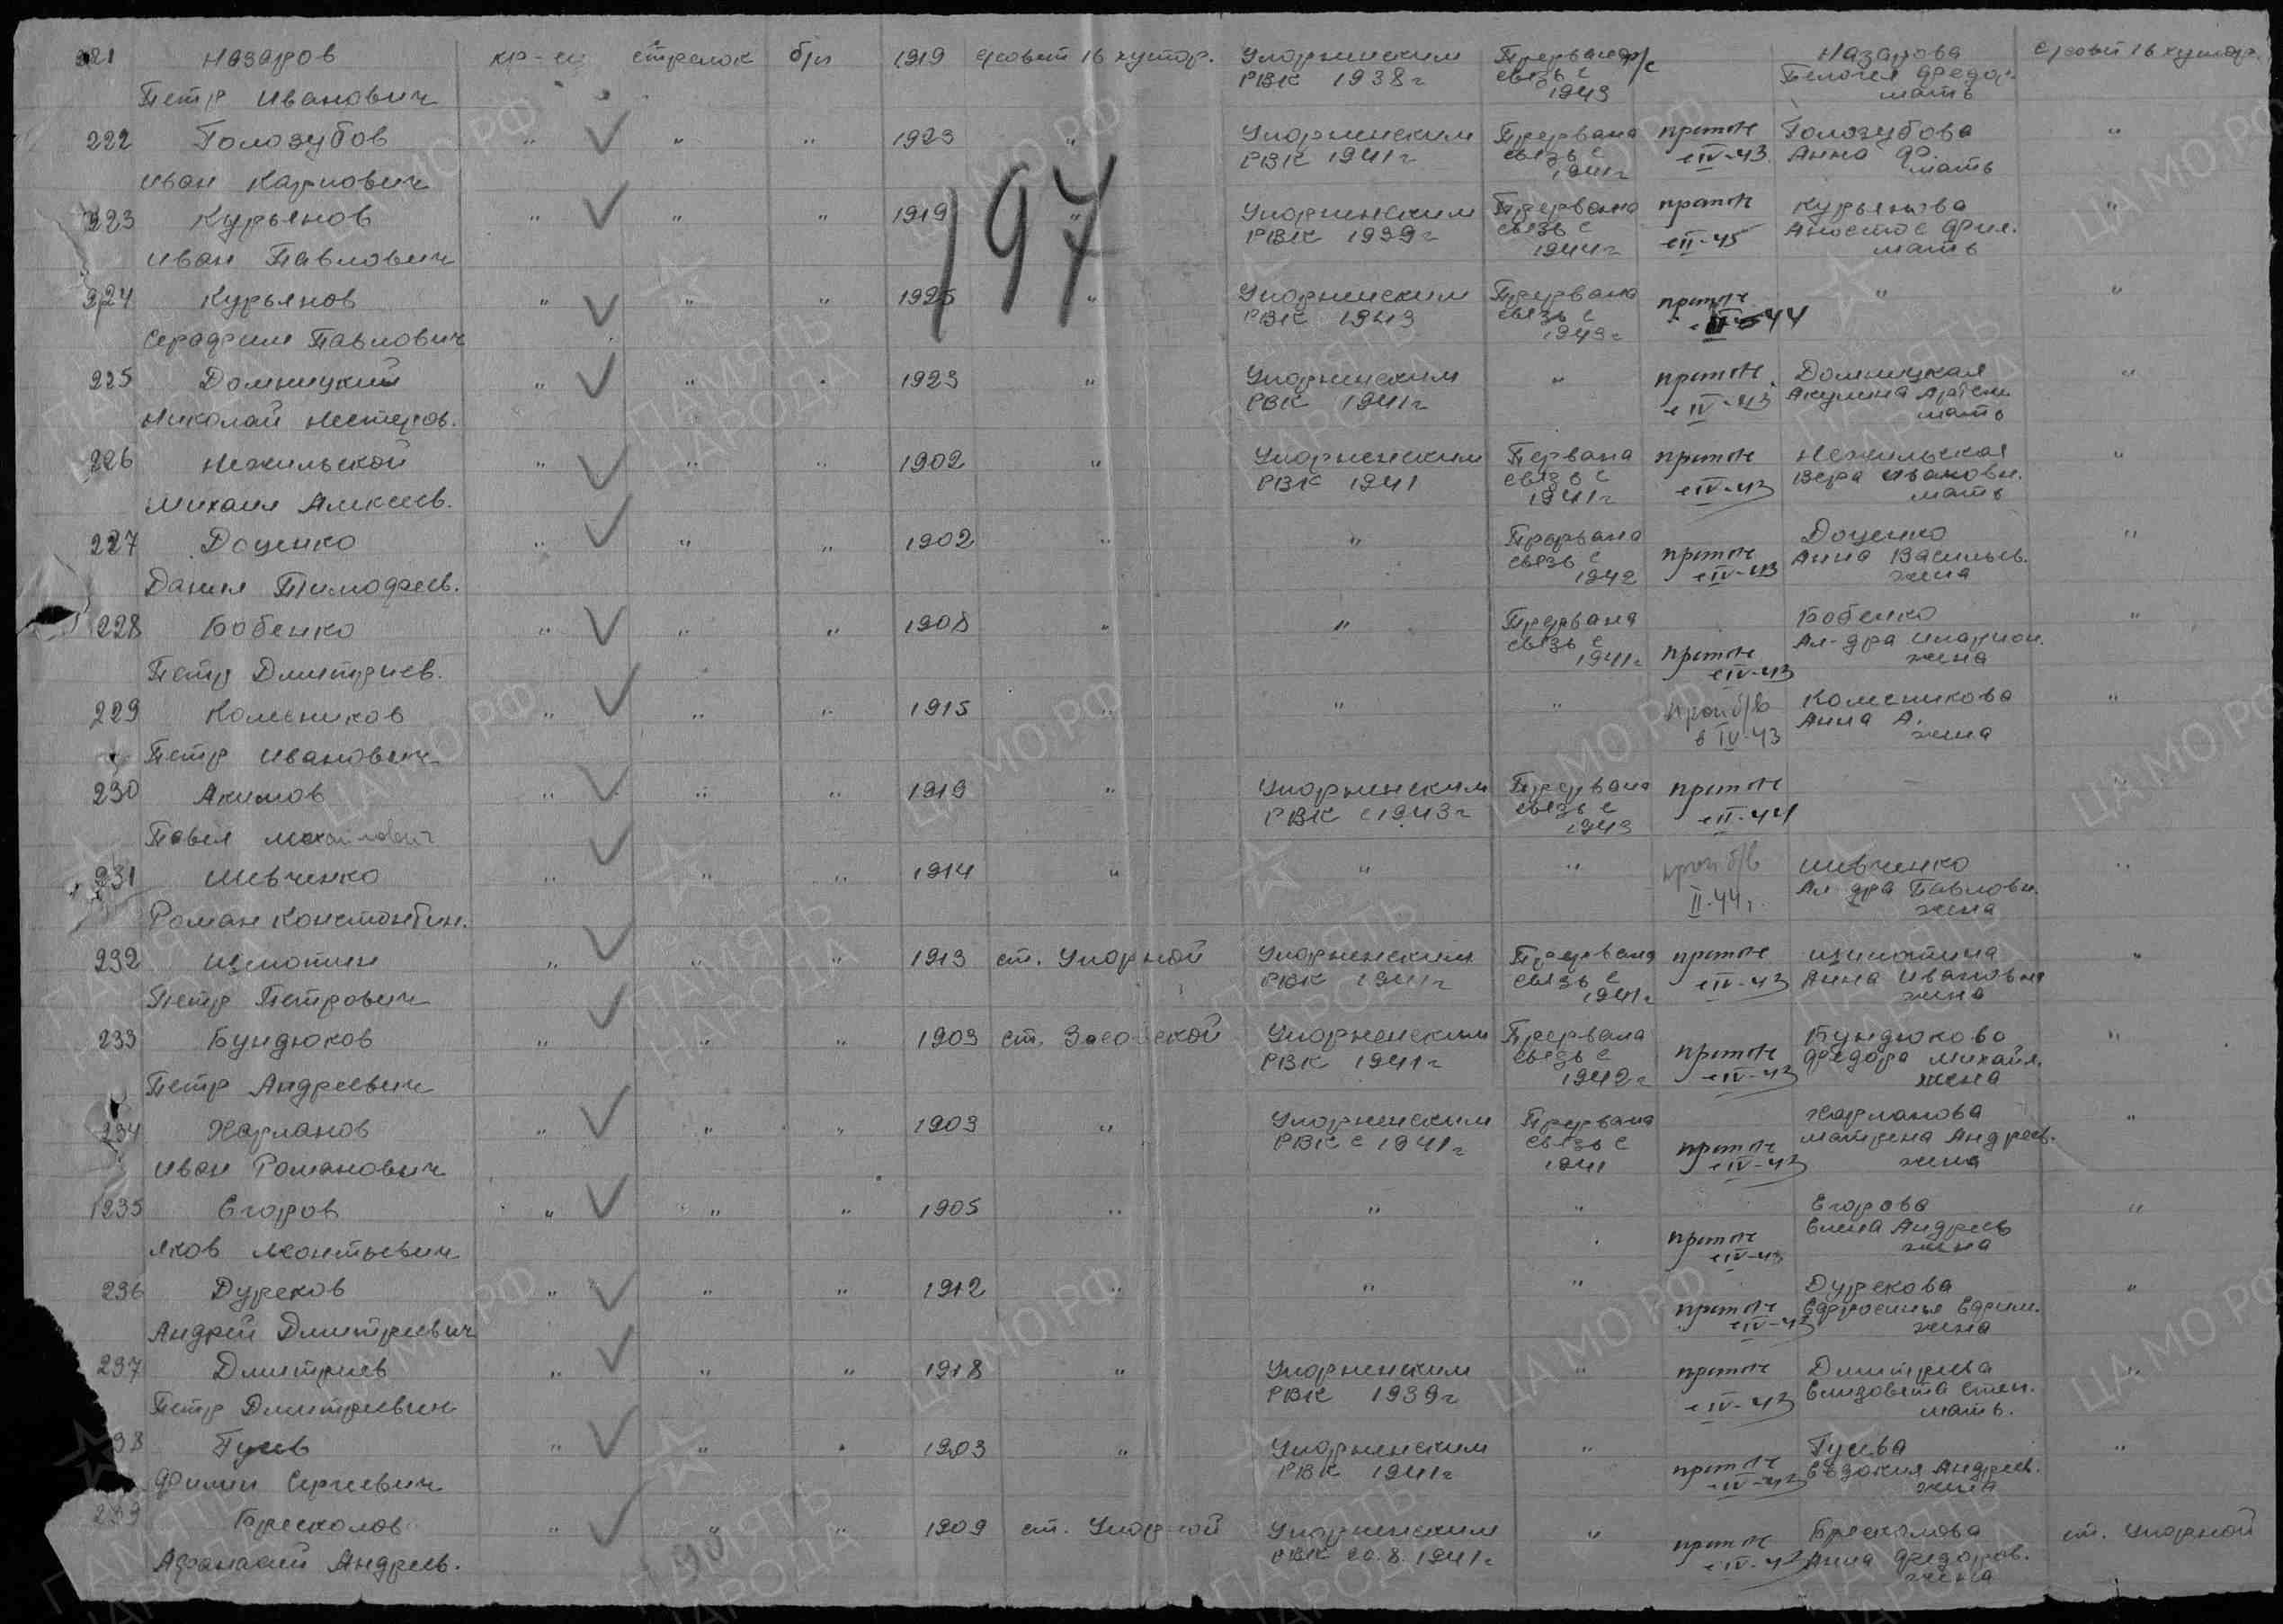 221 Назаров кр-ец стрелок б/п 1919 с/совет 16 хутор. Упорненским Прервана Назарова с/совет 16 хутор.
РВК 1938 г связь с Пелагея Федор.
Петр Иванович 1943 мать
222 Голозубов " " " 1923 " Упорненским Прервана Голозубова "
РВК 1941 г связь с с IV-43 Анна Ф.
Иван Карпович 1941 г мать
223 Курьянов " " " 1919 " Упорненским Прервана Курьянова "
РВК 1939 г связь с с II-45
Иван Павлович 1944 г мать
197
224 Курьянов " " " 1925 " Упорненским Прервана " "
РВК 1943 связь с
Серафим Павлович 1943 г
225 Домницкий " " " 1923 " Упорненским " Домницкая "
РВК 1941 г с IV-43 Акулина Артем.
Николай Нестеров. мать
226 Нежильской " " " 1902 " Упорненским Первана Нежильская "
РВК 1941 связь с с IV-43 Вера Ивановн.
Михаил Алексеев. 1941 г мать
227 Доценко " " " 1902 " " Прервана Доценко "
связь с с IV-43 Анна Васильев.
Данил Тимофеев. 1942 жена
228 Бобенко " " " 1908 " " Прервана Бобенко "
связь с с IV-43 Ал-дра Иларион.
Петр Дмитриев. 1941 г жена
229 Колесников " " " 1915 " " " проп б/в Колесникова "
в IV-43 Анна А.
Петр Иванович жена
230 Акимов " " " 1919 " Упорненским Прервана "
РВК с 1943 г связь с с II-44
Павел Михайлович 1943
231 Шевченко " " " 1914 " " " проп б/в Шевченко "
II-44 г. Ал-дра Павловн.
Роман Константин. жена
232 Измотин " " " 1913 ст. Упорной Упорненским Прервана Измотина "
РВК 1941 г связь с с IV-43 Анна Ивановна
Петр Петрович 1941 г жена
233 Бундюков " " " 1903 ст. Упорненским Прервана Бундюкова "
РВК 1941 г связь с с IV-43 Федора Михайл.
Петр Андреевич 1942 г жена
234 Харланов " " " 1903 " Упорненским Прервана Харланова "
РВК с 1941 г связь с с IV-43 Матрена Андреев.
Иван Романович 1941 жена
235 Егоров " " " 1905 " " " Егорова "
с IV-43 Елена Андреев
Яков Леонтьевич жена
236 Дуреков " " " 1912 " " " Дурекова "
с IV-43 Ефросинья Ефим.
Андрей Дмитриевич жена
237 Дмитриев " " " 1918 " Упорненским " Дмитриева "
РВК 1939 г с IV-43 Елизовета Степ.
Петр Дмитриевич мать.
38 Гусев " " " 1903 " Упорненским " Гусева "
РВК 1941 г Евдокия Андреев.
Филип Сергеевич жена
239 Бресколов " " " 1909 ст. Упорной Упорненским " Бресколова ст. Упорной
РВК 20.8.1941 г Анна Федоров.
Афанасий Андреев. жена
ПАМЯТЬ НАРОДА
ЦА МО РФ